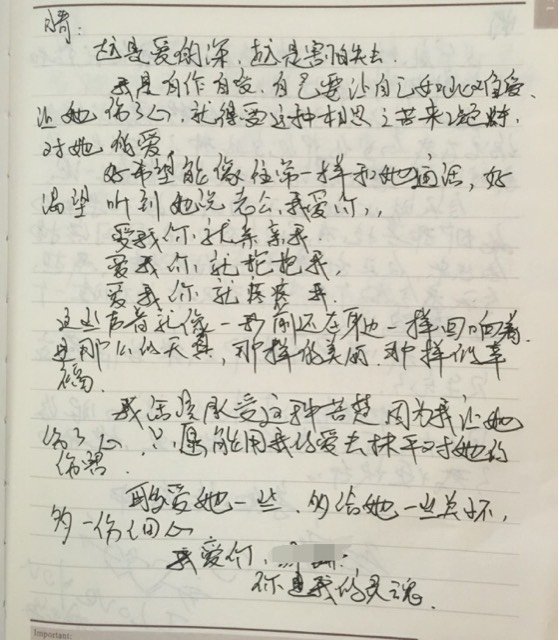 晴：
越是爱的深，越是害怕失去．
我是自作自受，自己要让自己如此难受．
让她伤了心，就得受这种相思之苦来
对她的爱．
好希望能像往常一样和她通话，好
渴望听到她说老公，我爱你，，
爱我你就亲亲我．
爱我你就抱抱我，
爱我你就疼疼我
这些声音就像一秒前还在耳边一样回响着
是那么的天真，那样的美丽，那样的幸
福．
我活该承受这种苦楚因为我让她
伤了心．愿能用我的爱去抹平对她的
伤害．
再多爱她一些．多给她一些关怀，
多一份细心
我爱你，
你是我的灵魂．
Important: